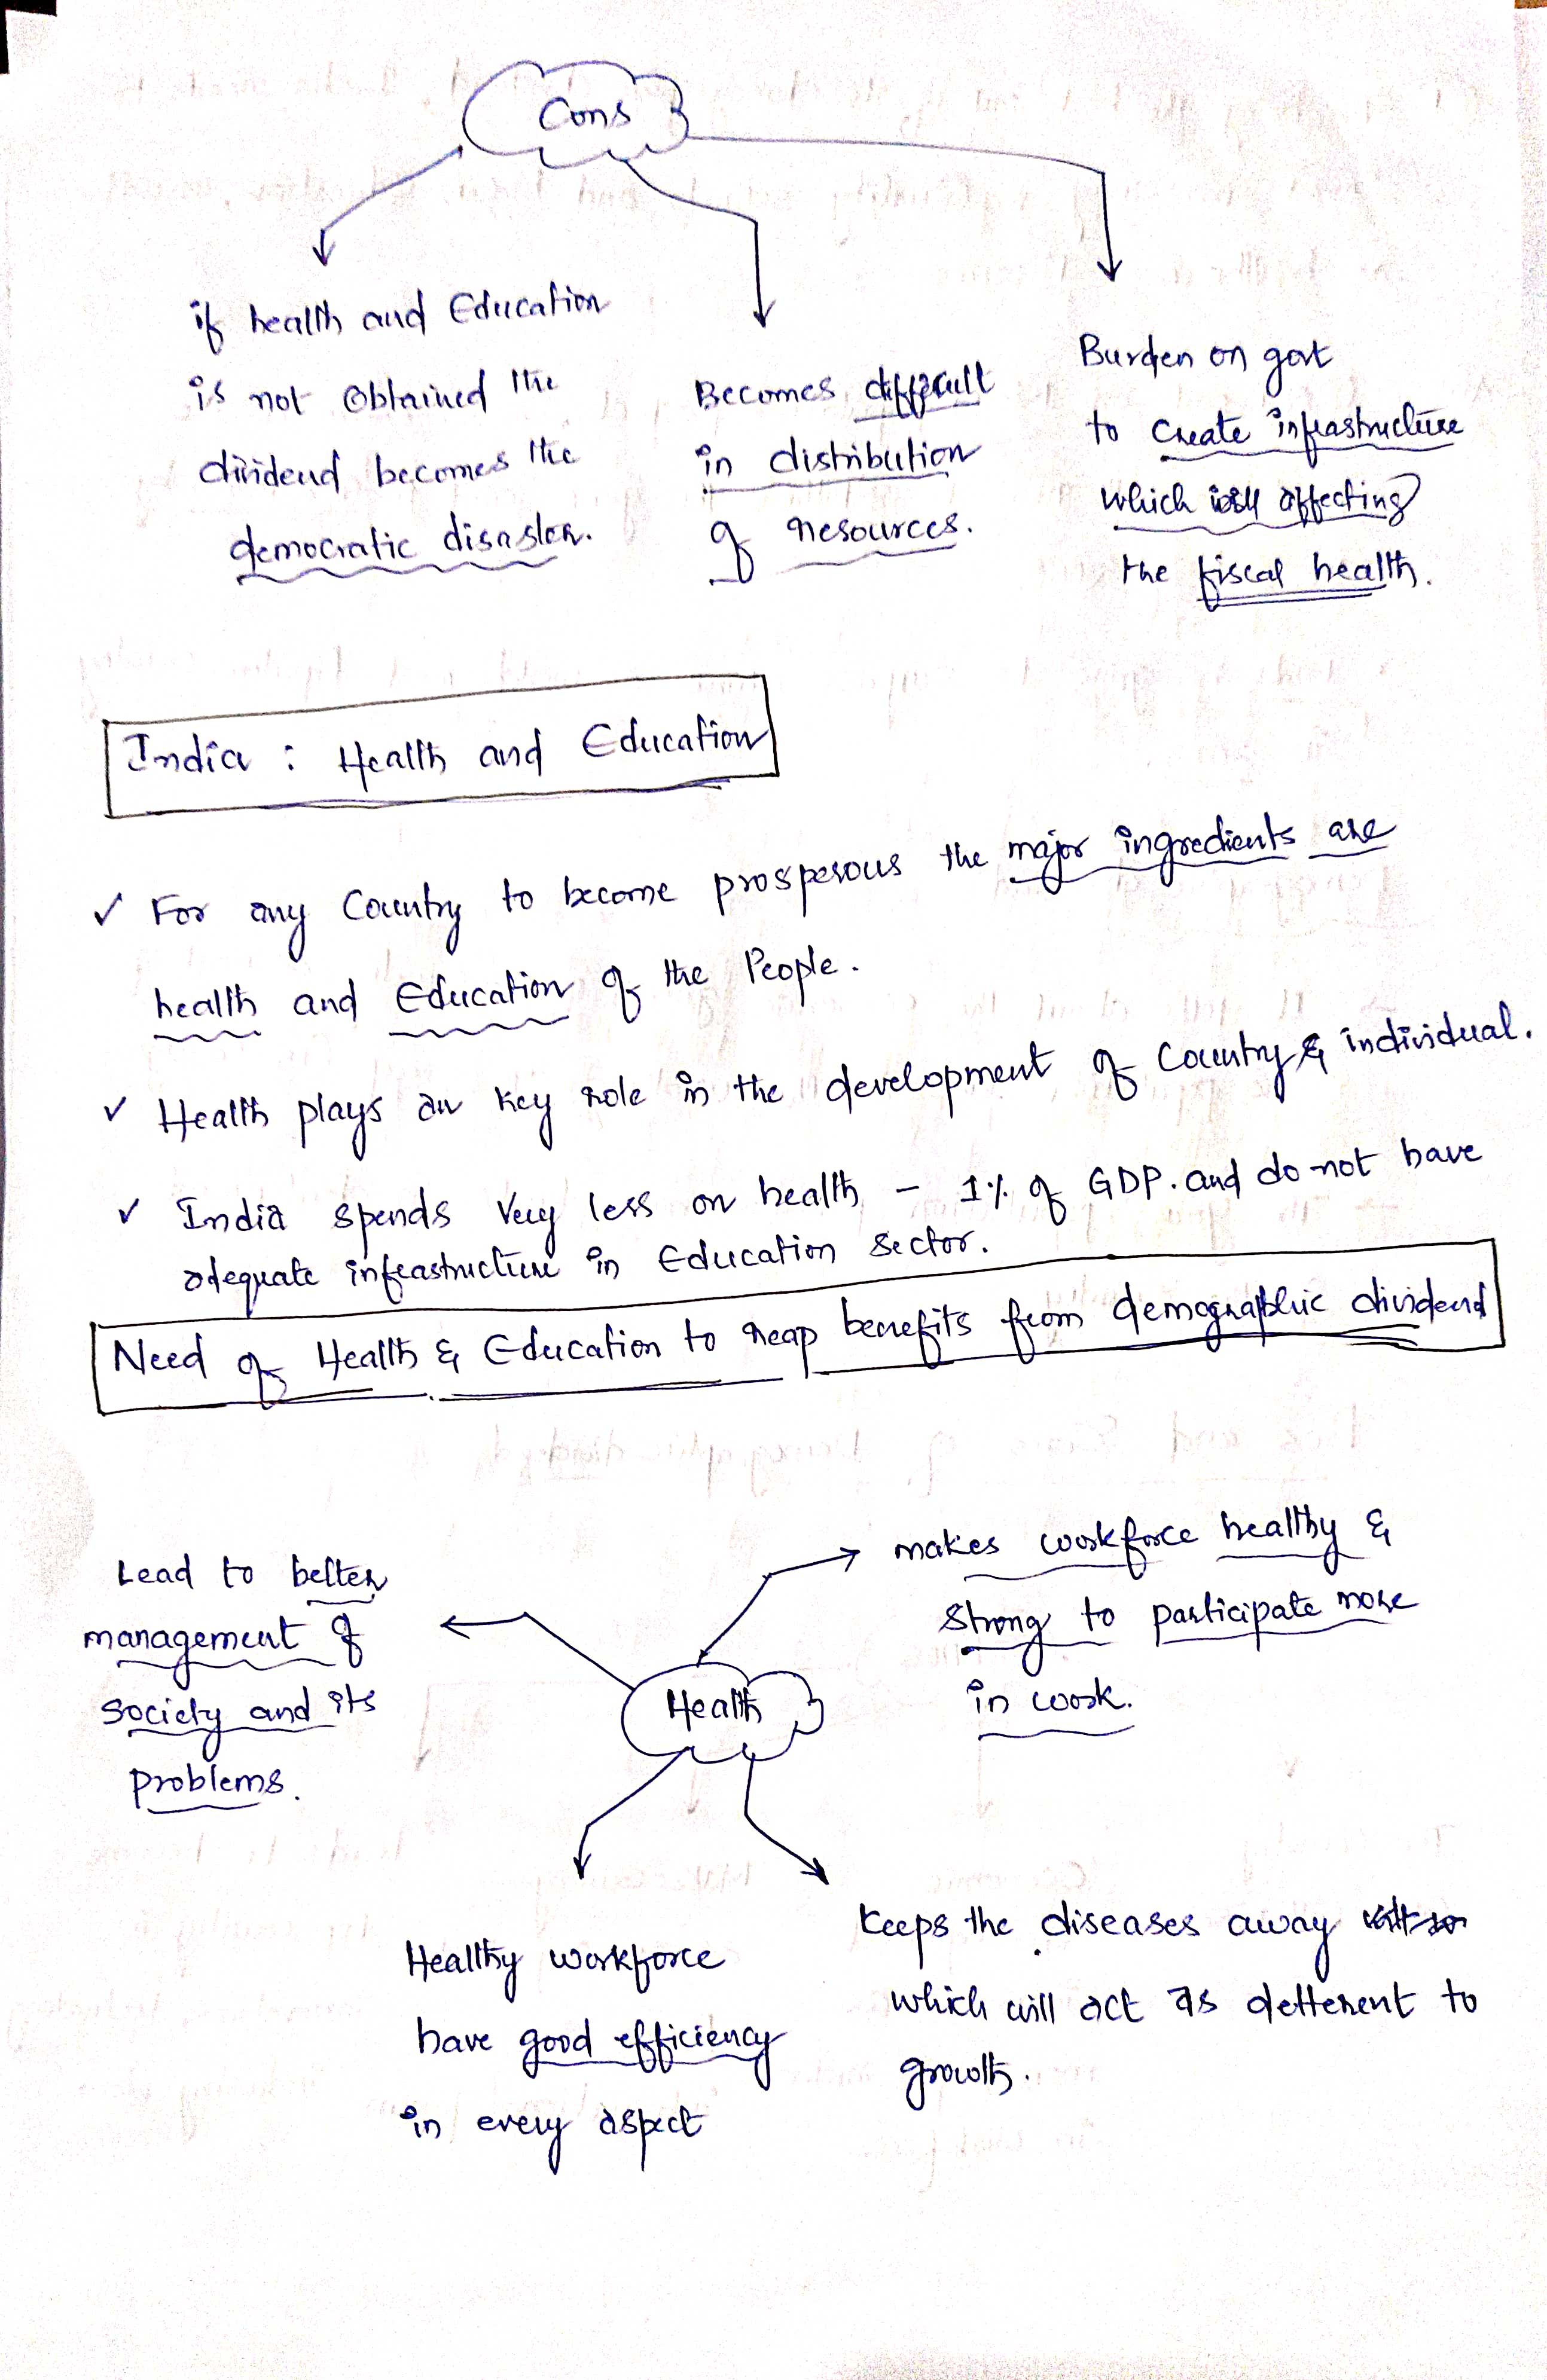 Cons
if health and Education
is not obtained the
dividend becomes the
democratic disaster.
Becomes difficult
in distribution
of resources.
Burden on govt
to create infrastructure
which will affecting
the fiscal health.
India : Health and Education
✓ For any Country to become prosperous the major ingredients are
health and Education of the People.
✓ Health plays an key role in the development of Country & individual.
✓ India spends very less on health – 1% of GDP. and do not have
adequate infrastructure in Education Sector.
Need of Health & Education to reap benefits from demographic dividend
makes workforce healthy &
strong to participate more
in work.
Lead to better
management of
society and its
problems.
Health
Healthy workforce
have good efficiency
in every aspect
Keeps the diseases away
which will act as detterent to
growth.